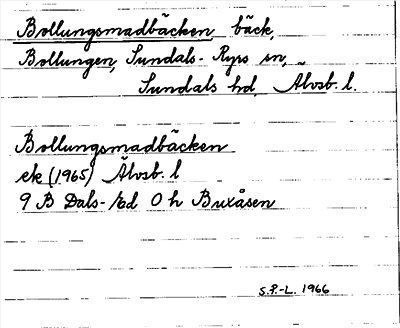 Bollungsmadbäcken, bäck,
Bollungen, Sundals-Ryrs sn,
Sundals hd, Älvsb. l.
Bollungsmadbäcken
ek (1965) Älvsb. l
9 B Dals-Ed 0 h Buxåsen
S.P.-L. 1966